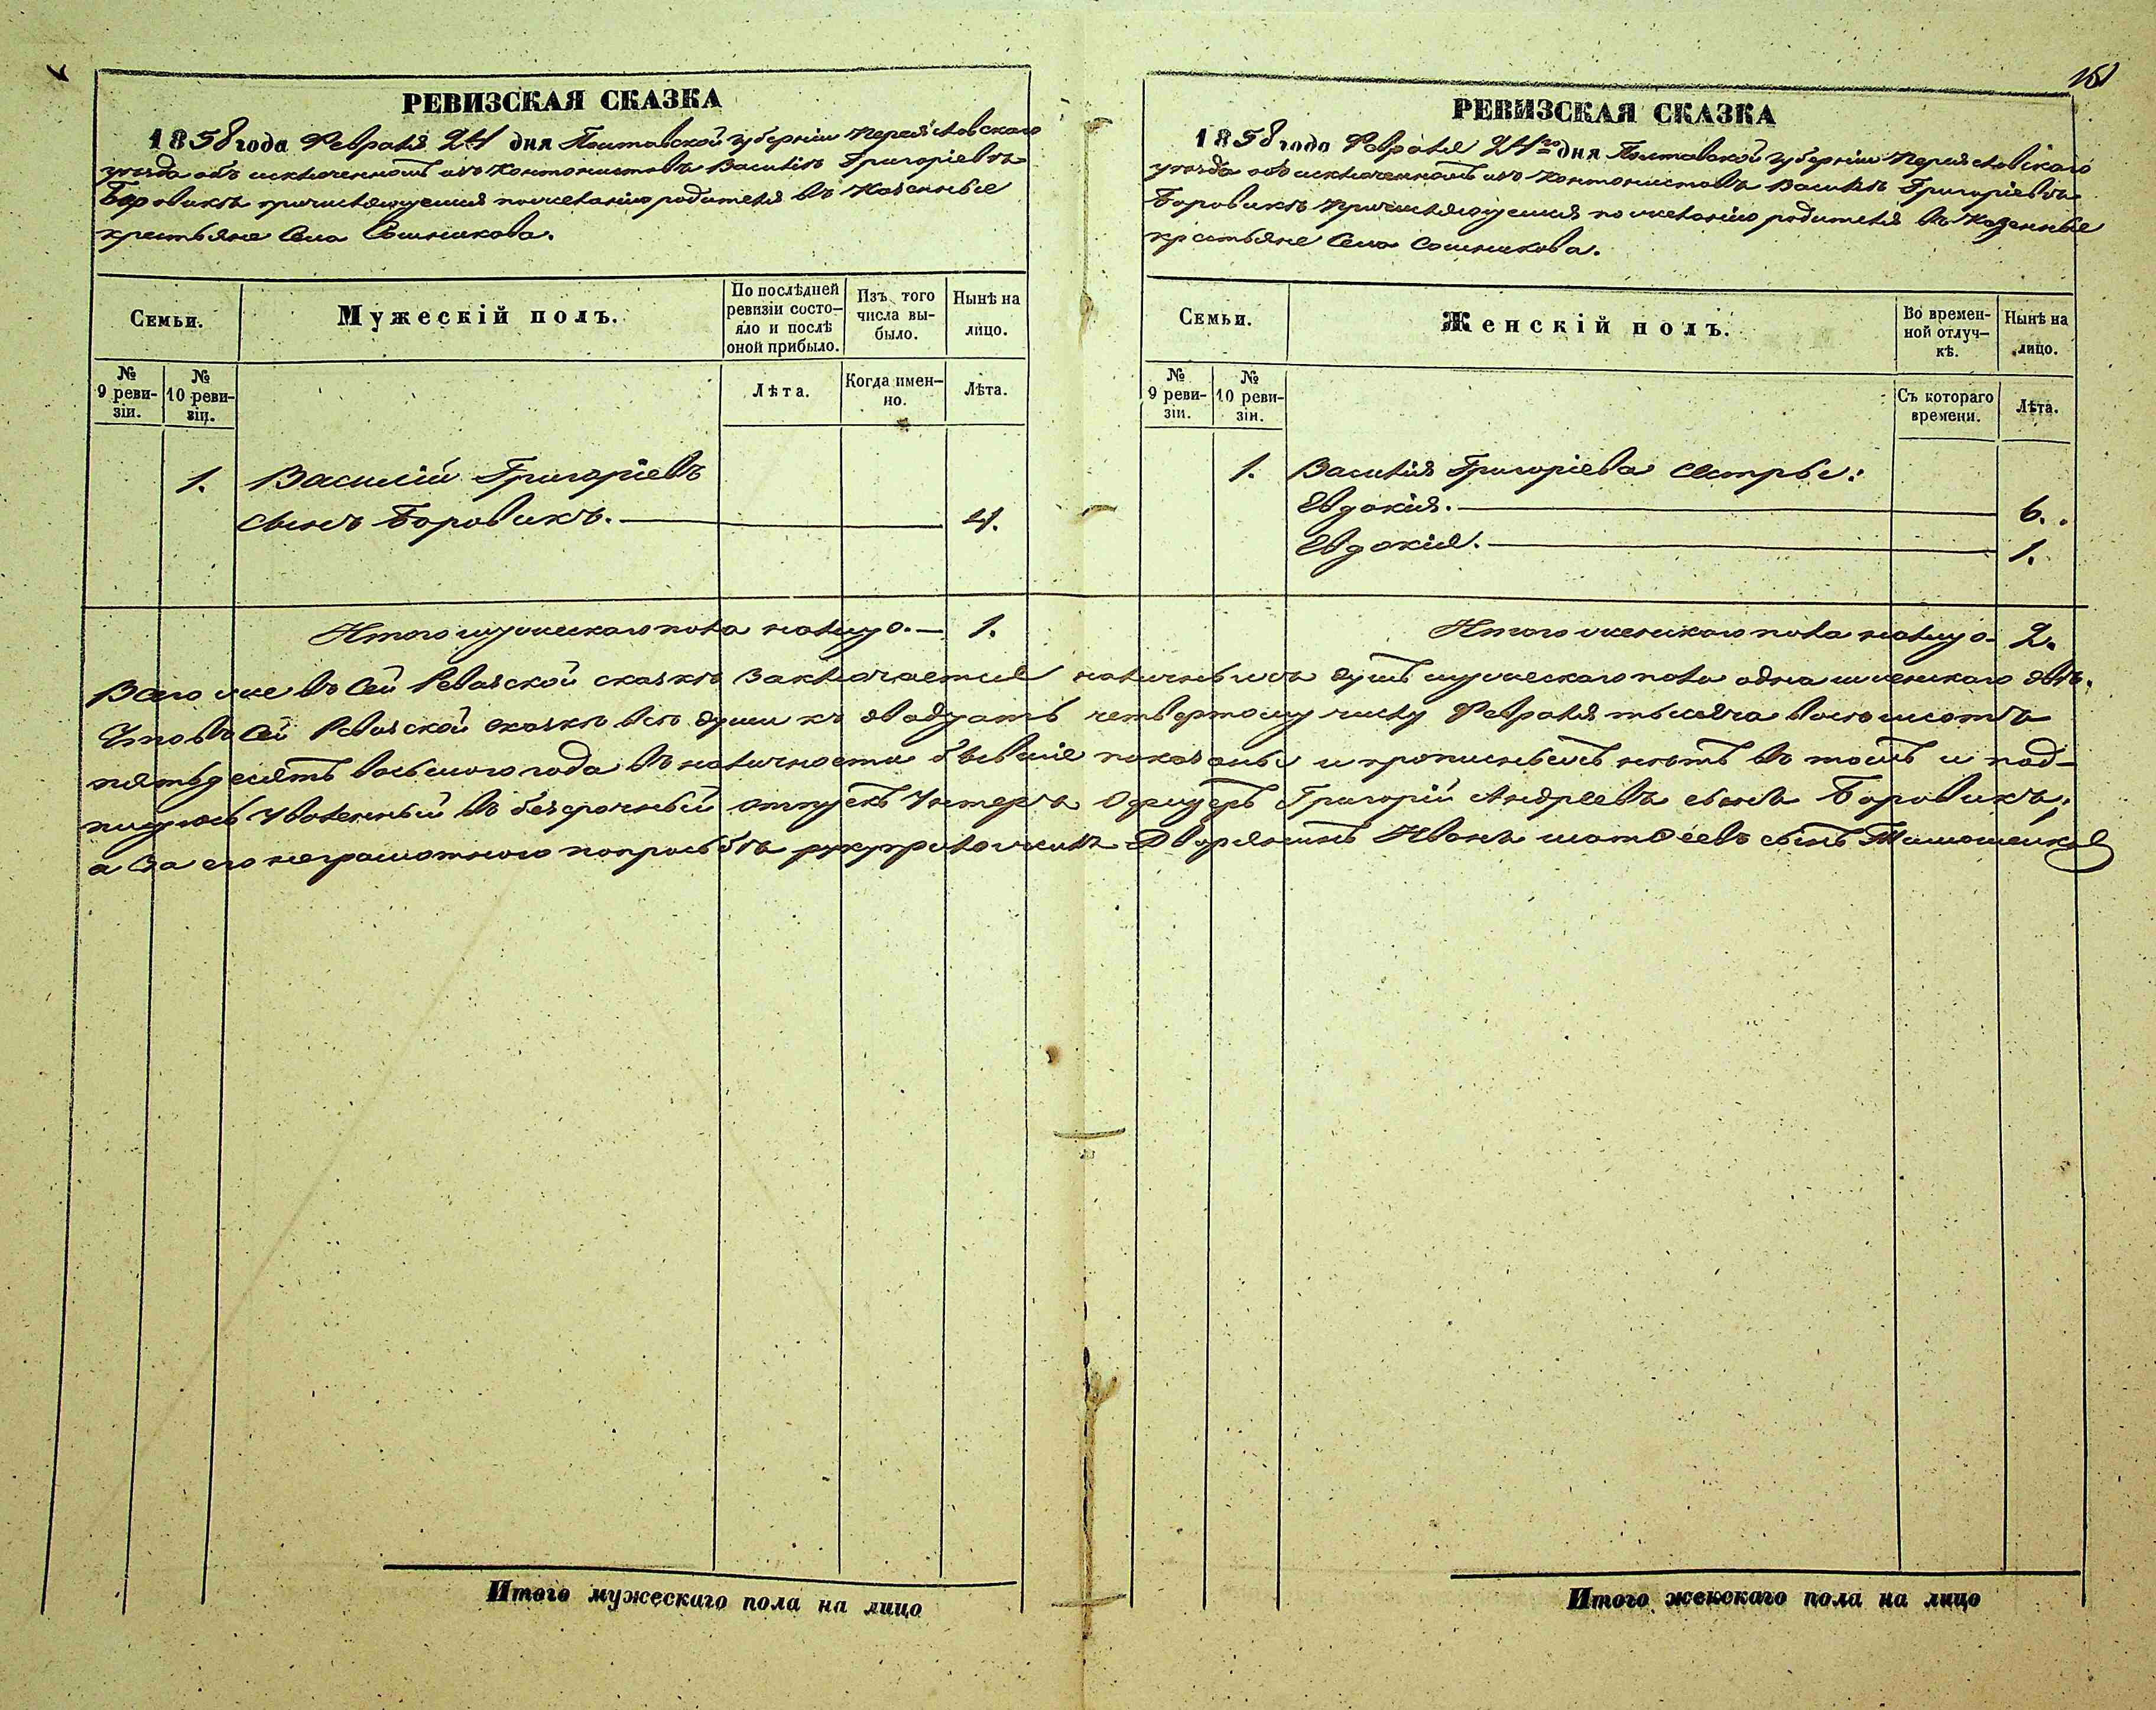 151
РЕВИЗСКАЯ СКАЗКА
1858 года Февраля 24 дня Полтавской губерніи Переяславскаго
уезда объ исключенномъ изъ кантонистовъ Василіѣ Григоріевѣ
Боровикѣ причисляющемся по желанію родителя въ казенные
крестьяне Села Сошникова.
Семьи.
Мужескій полъ.
По послѣдней ревизіи состо-
яло и послѣ оной прибыло.
Изъ того числа вы-
было.
Нынѣ на лицо.
№ 9 реви-
зіи.
№ 10 реви-
зіи.
Лѣта.
Когда имен-
но.
Лѣта.
1. Василій Григоріевъ
сынъ Боровикъ. 4.
Итого мужескаго пола налицо. 1.
РЕВИЗСКАЯ СКАЗКА
1858 года Февраля 24го дня Полтавской губерніи Переяславскаго
уезда объ исключенномъ изъ кантонистовъ Василіѣ Григоріевѣ
Боровикѣ причисляющемся по желанію родителя въ казенные
крестьяне Села Сошникова.
Семьи.
Женскій полъ.
Во времен-
ной отлуч-
кѣ.
Нынѣ на лицо.
№ 9 реви-
зіи.
№ 10 реви-
зіи.
Съ котораго времени.
Лѣта.
1. Василія Григоріева сестры:
Евдокія. 6.
Евдокія. 1.
Итого женскаго пола налицо 2.
Всего же въ сей Ревизской сказкѣ заключается наличныхъ душъ мужескаго пола одна и женскаго двѣ.
Что въ сей Ревизской сказкѣ все души къ двадцать четвертому числу Февраля тысяча восемьсотъ
пятьдесятъ восьмого года въ наличности бывшіе показаны и прописныхъ нѣтъ въ томъ и под-
писуюсь уволенный въ безсрочный отпускъ Унтеръ Офицеръ Григорій Андреевъ сынъ Боровикъ,
а за его неграмотного по просьбѣ рукуприложилъ Дворянинъ Иванъ Матѳеевъ сынъ
Итого мужескаго пола на лицо
Итого женскаго пола на лицо